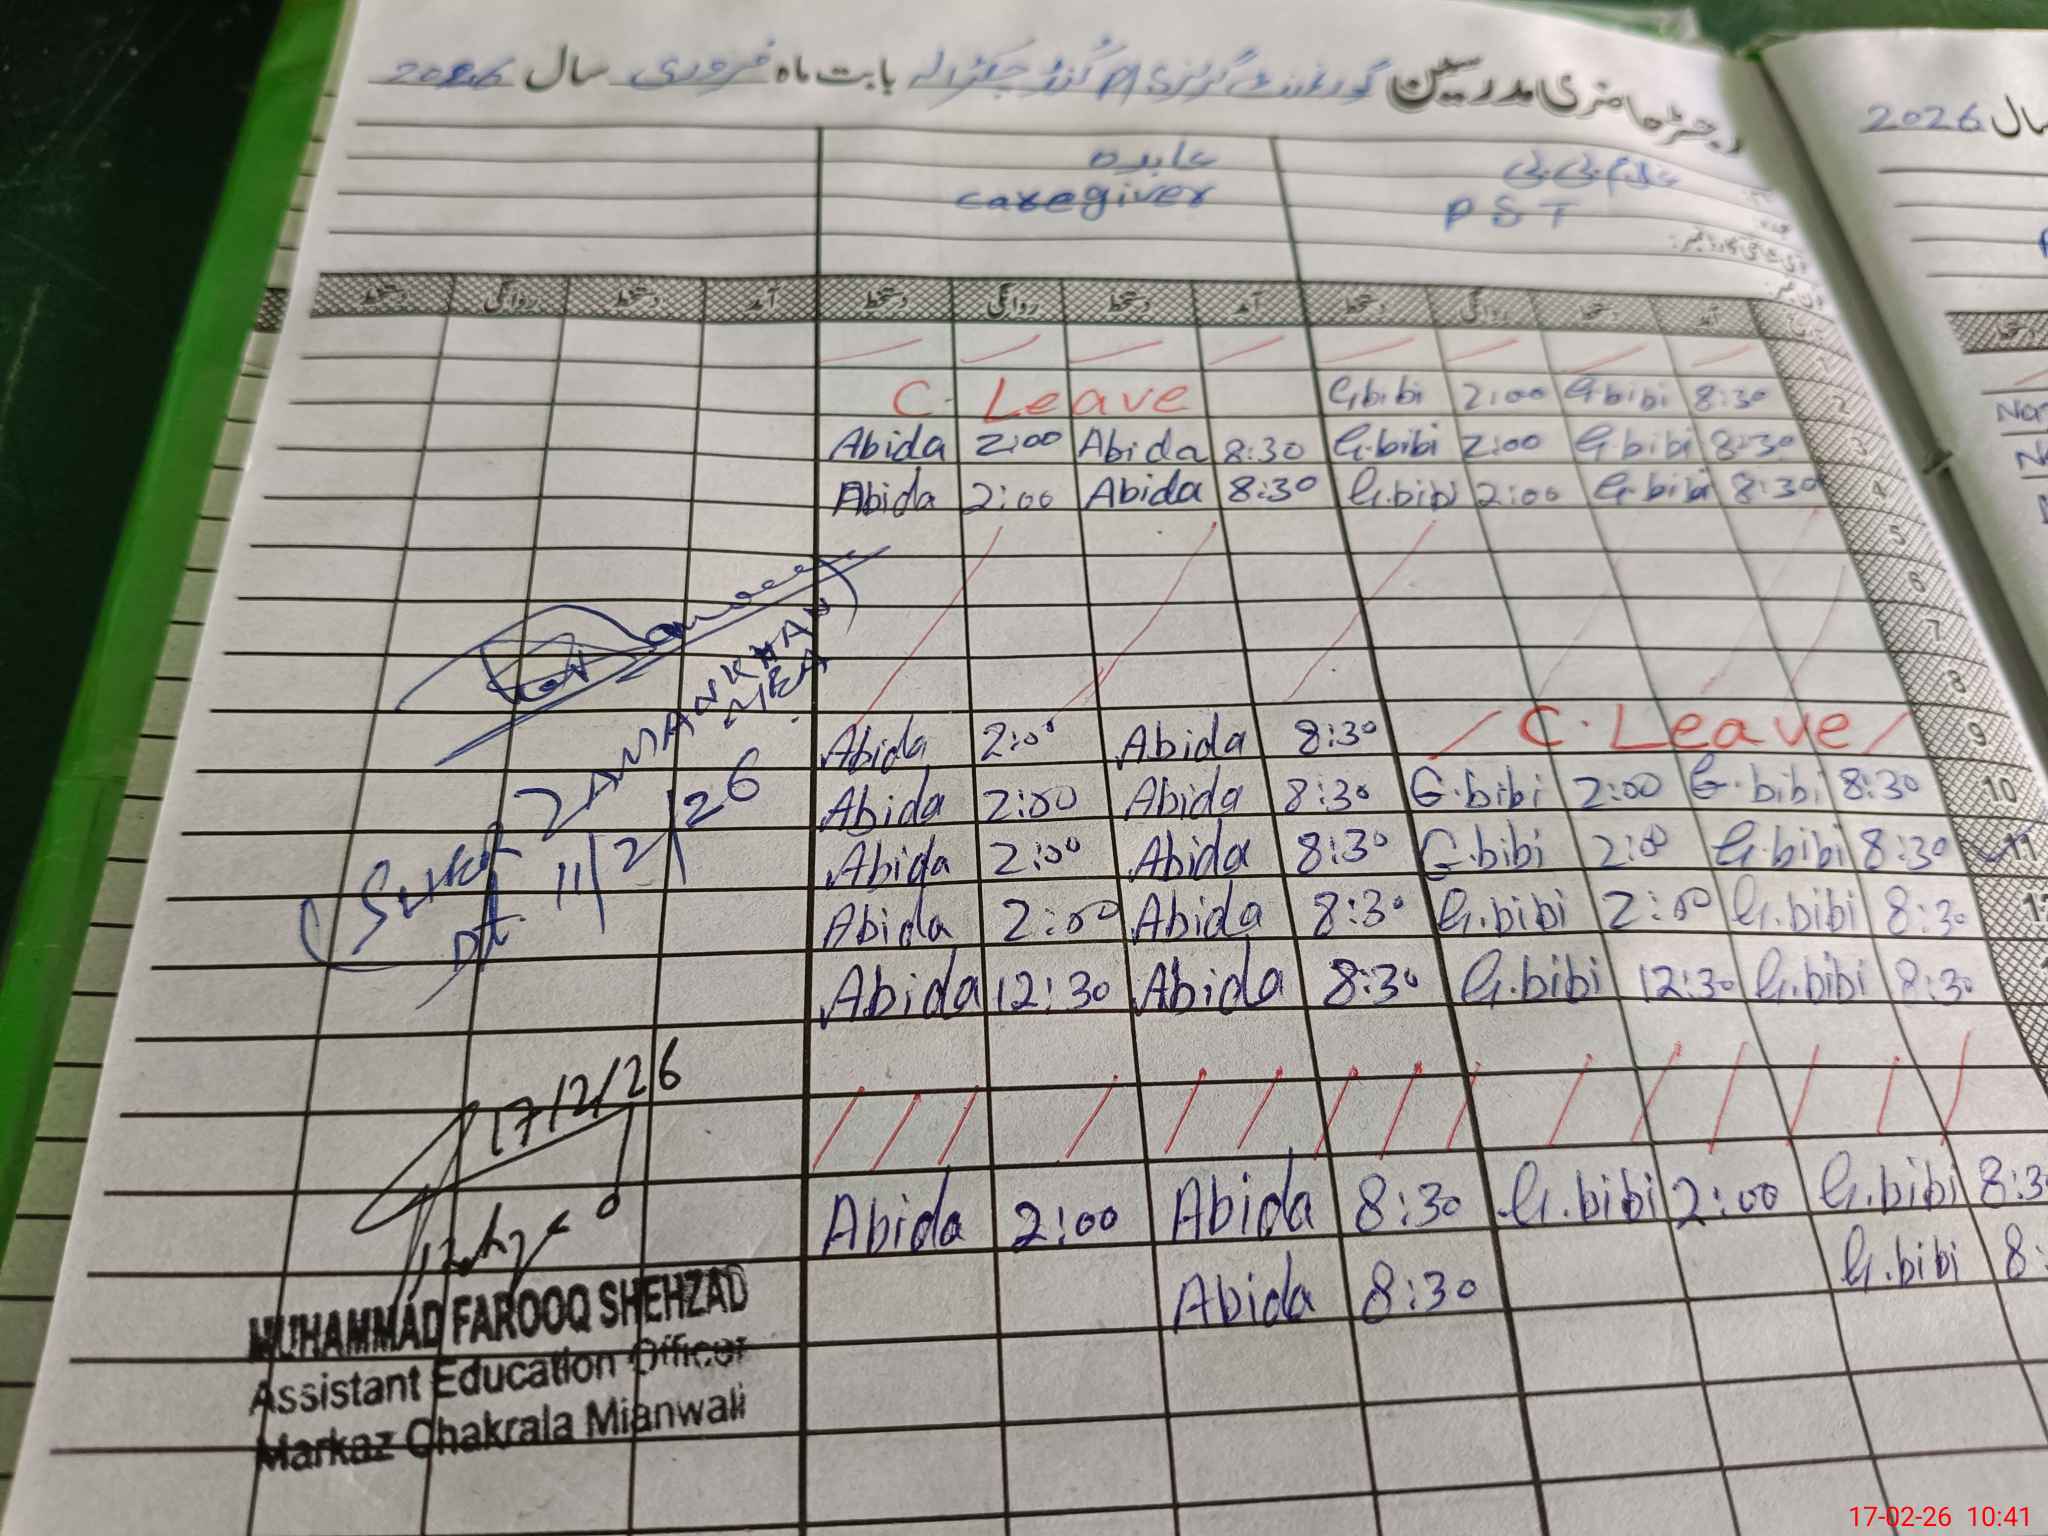 رجسٹر حاضری مدرسین گورنمنٹ گرلز بابت ماہ فروری سال 2026
سال 2026
عابدہ
caregiver
بی بی
PST
تاریخ آمد دستخط روانگی دستخط آمد دستخط روانگی دستخط آمد دستخط روانگی دستخط
1
C. Leave G.bibi 2:00 G.bibi 8:30 2
Abida 2:00 Abida 8:30 G.bibi 2:00 G.bibi 8:30 3
Abida 2:00 Abida 8:30 G.bibi 2:00 G.bibi 8:30 4
5
6
7
8
Abida 2:00 Abida 8:30 C. Leave 9
Abida 2:00 Abida 8:30 G.bibi 2:00 G.bibi 8:30 10
Abida 2:00 Abida 8:30 G.bibi 2:00 G.bibi 8:30 11
Abida 2:00 Abida 8:30 G.bibi 2:00 G.bibi 8:30
Abida 12:30 Abida 8:30 G.bibi 12:30 G.bibi 8:30
Abida 2:00 Abida 8:30 G.bibi 2:00 G.bibi 8:3
Abida 8:30 G.bibi 8:
ZAMAN KHAN
MEA
Dt 11/2/26
17/2/26
MUHAMMAD FAROOQ SHEHZAD
Assistant Education Officer
Markaz Chakrala Mianwali
17-02-26 10:41